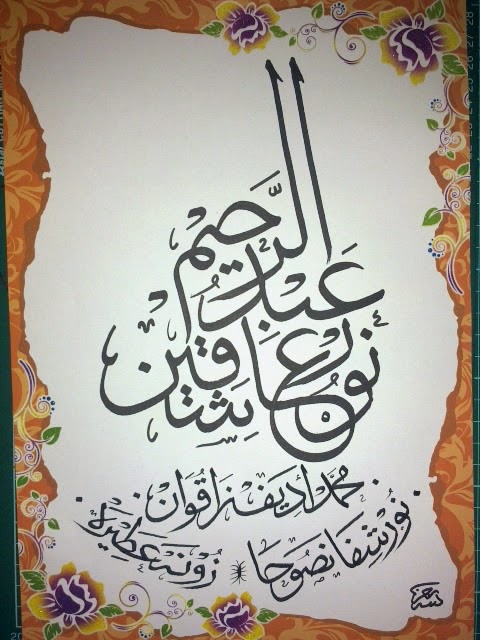 عبد الرحيم
نور عاشقين
محمد أديف زاقوان
نور شفا نصوحا * زونة عطيرة